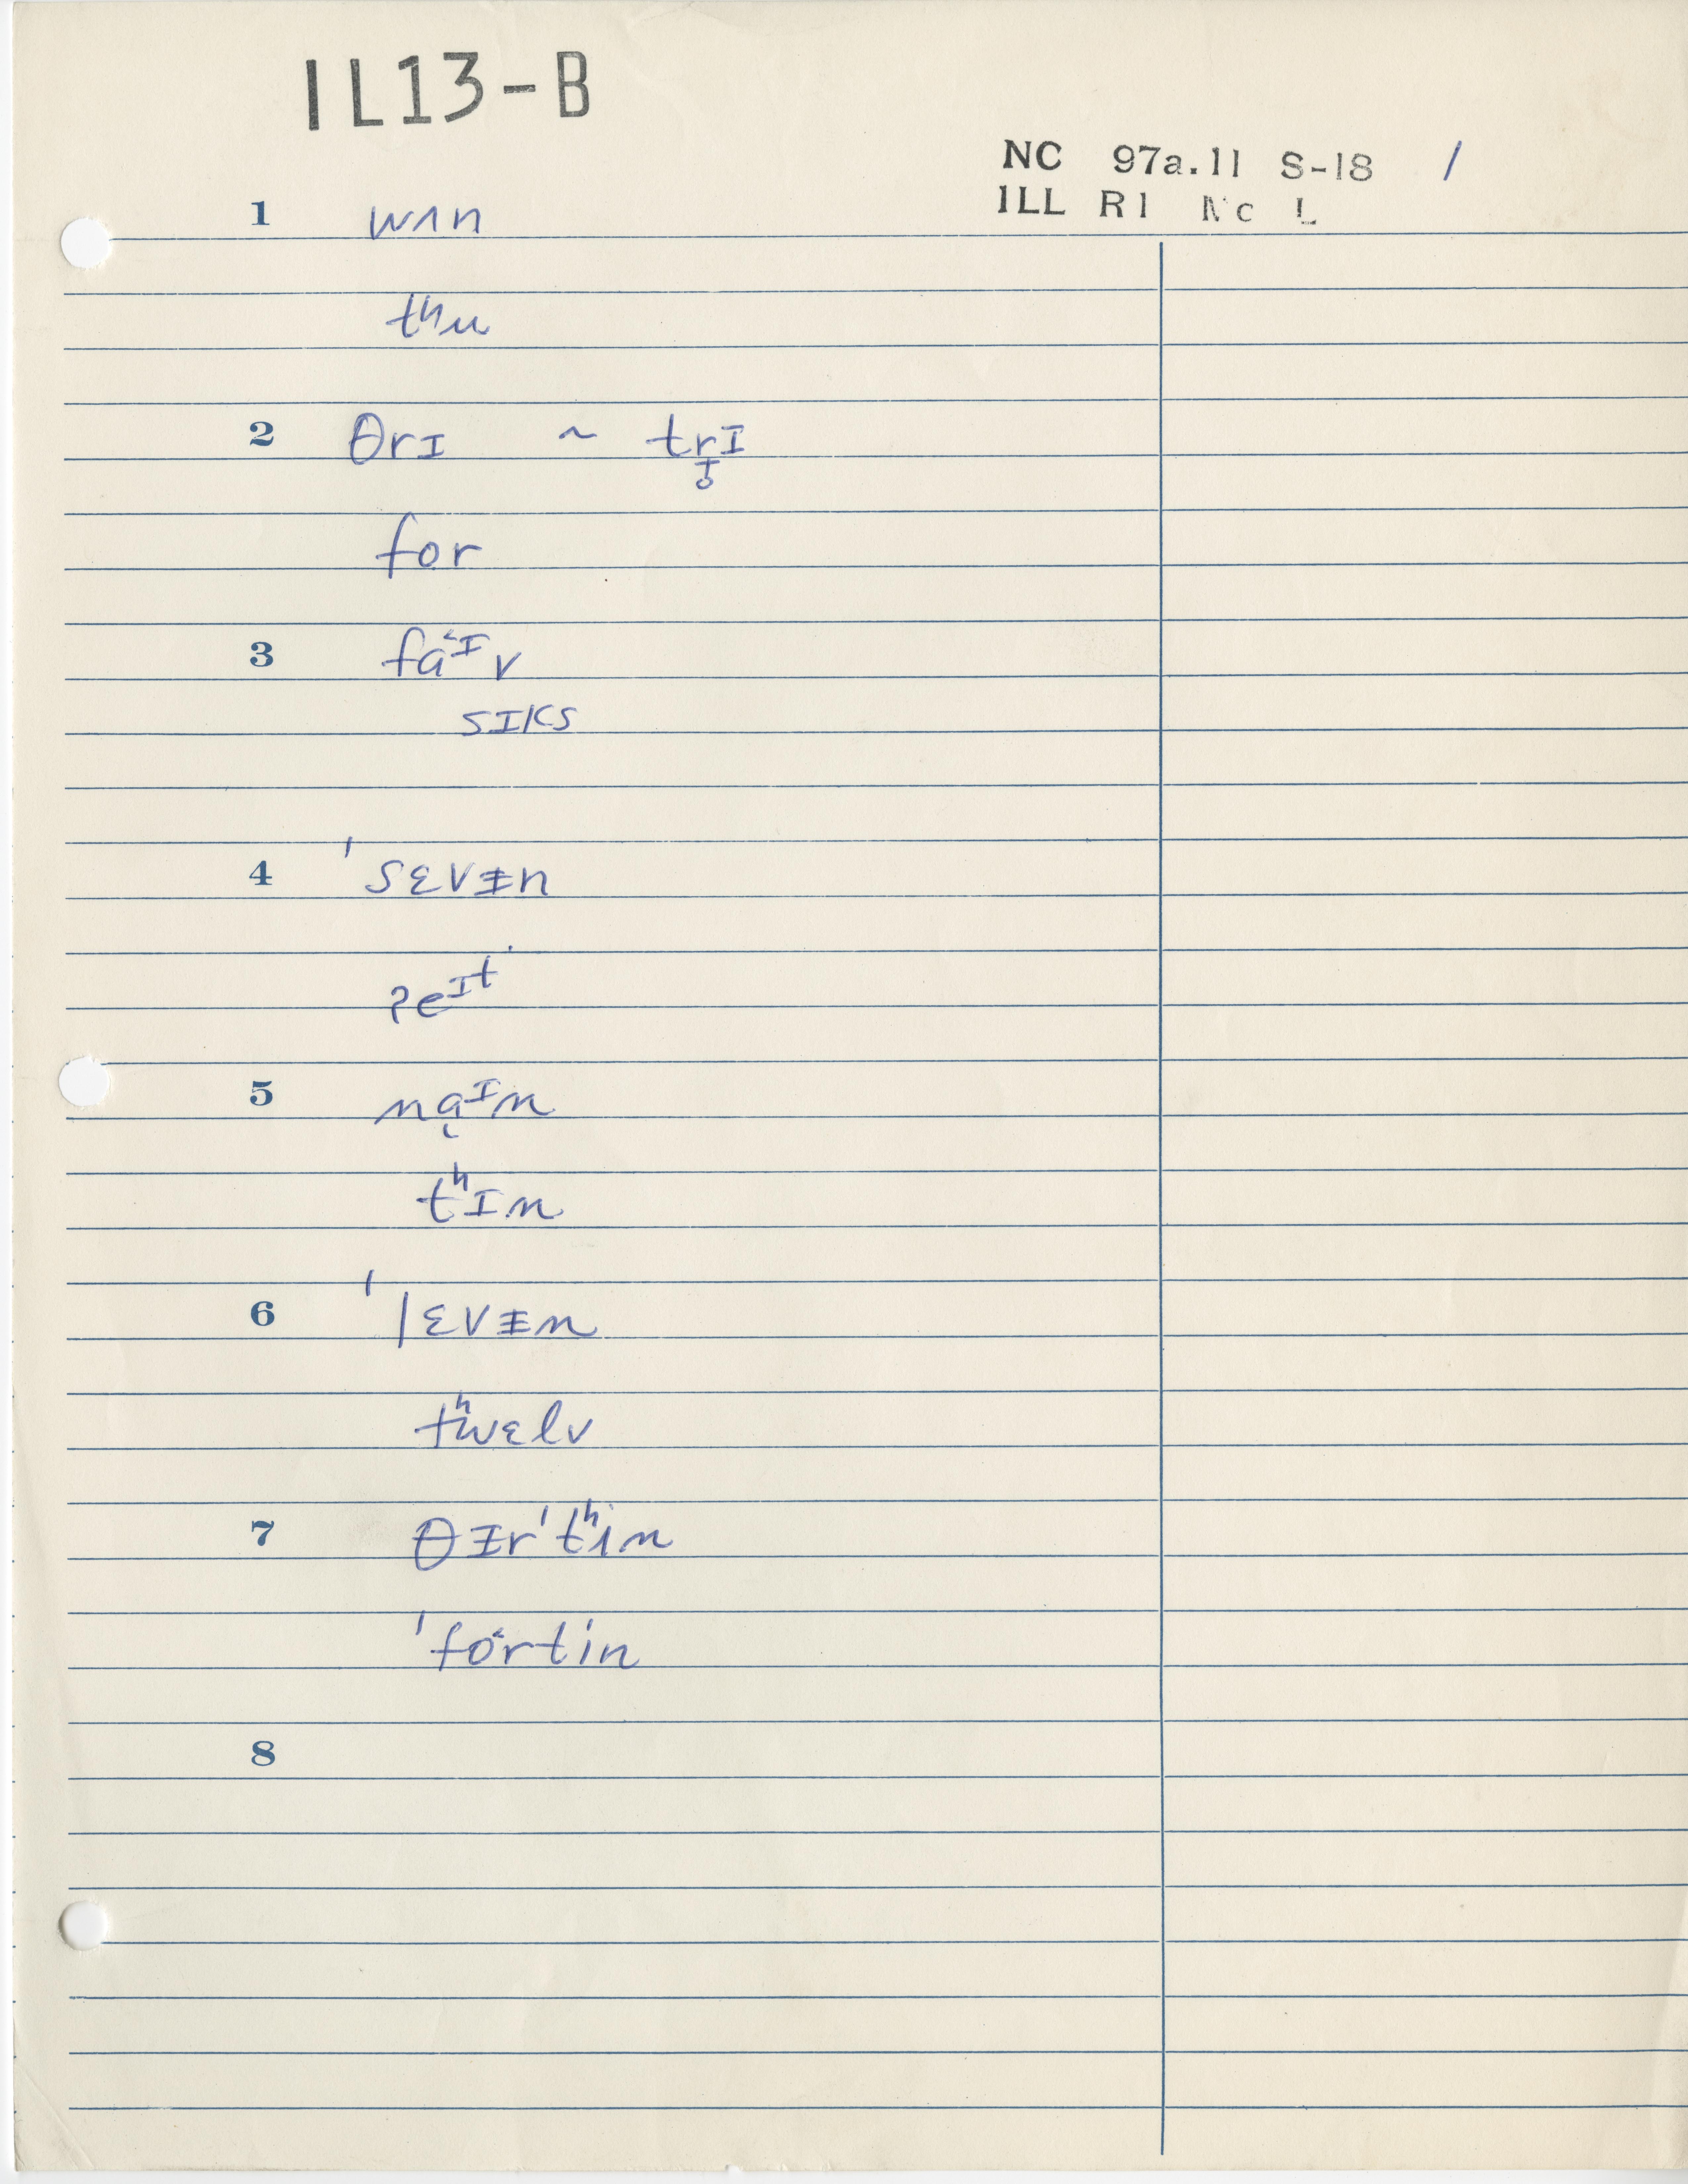 IL13-B
NC 97a.11 S-18 /
ILL R1 Nc L
1 wʌn
tʰu
2 θrɪ ~ tr̥ɪ
for
3 fa˂ᴵv
sɪks
4 ˈsɛvɪ̵n
ʔeᴵt
5 na̜ᴵn
tʰɪn
6 ˈlɛvɪ̵n
tʰwɛlv
7 θɪ̵rˈtʰin
ˈfo˂rtin
8